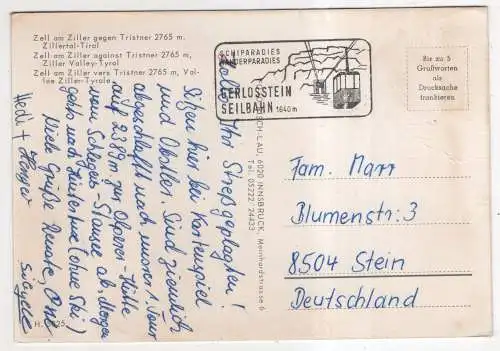 Zell am Ziller gegen Tristner 2765 m,
Zillertal-Tirol
Zell am Ziller against Tristner 2765 m,
Ziller Valley-Tyrol
Zell am Ziller vers Tristner 2765 m, Val-
lée Ziller-Tyrole
SCHIPARADIES
WANDERPARADIES
GERLOSSTEIN
SEILBAHN 1640 m
Bis zu 5
Grußworten
als
Drucksache
frankieren
Ihr Streßgeplagten!
Sitzen hier bei Kartenspiel
und Obstler. Sind ziemlich
abgeschlafft nach unserer 1. Tour
auf 2389 m zur Olperer-Hütte
vom Schlegeis-Stausee ab. Morgen
gehts nach Hintertux (ohne Ski)
Viele Grüße Renate,
Hedi + Holger
Sibylle
6020 INNSBRUCK, Meinhardstrasse 6
Tel. 05222/24433
Fam. Marr
Blumenstr. 3
8504 Stein
Deutschland